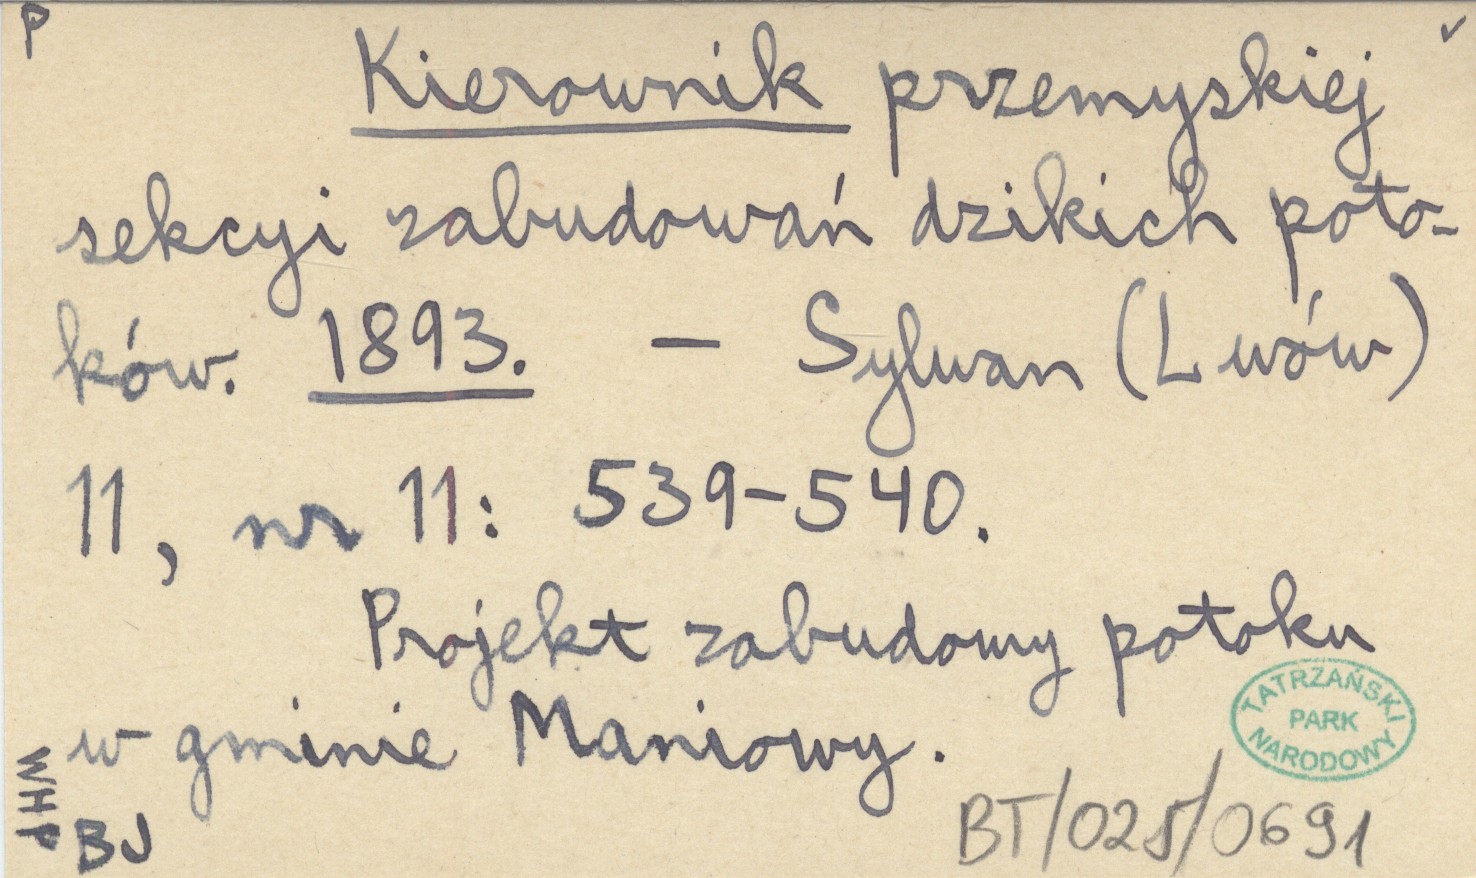 P
✓
Kierownik przemyskiej
sekcyi zabudowań dzikich poto-
ków. 1893. — Sylwan (Lwów)
11, nr 11: 539-540.
Projekt zabudowy potoku
w gminie Maniowy.
TATRZAŃSKI
PARK
NARODOWY
WHP
BJ
BT/025/0691